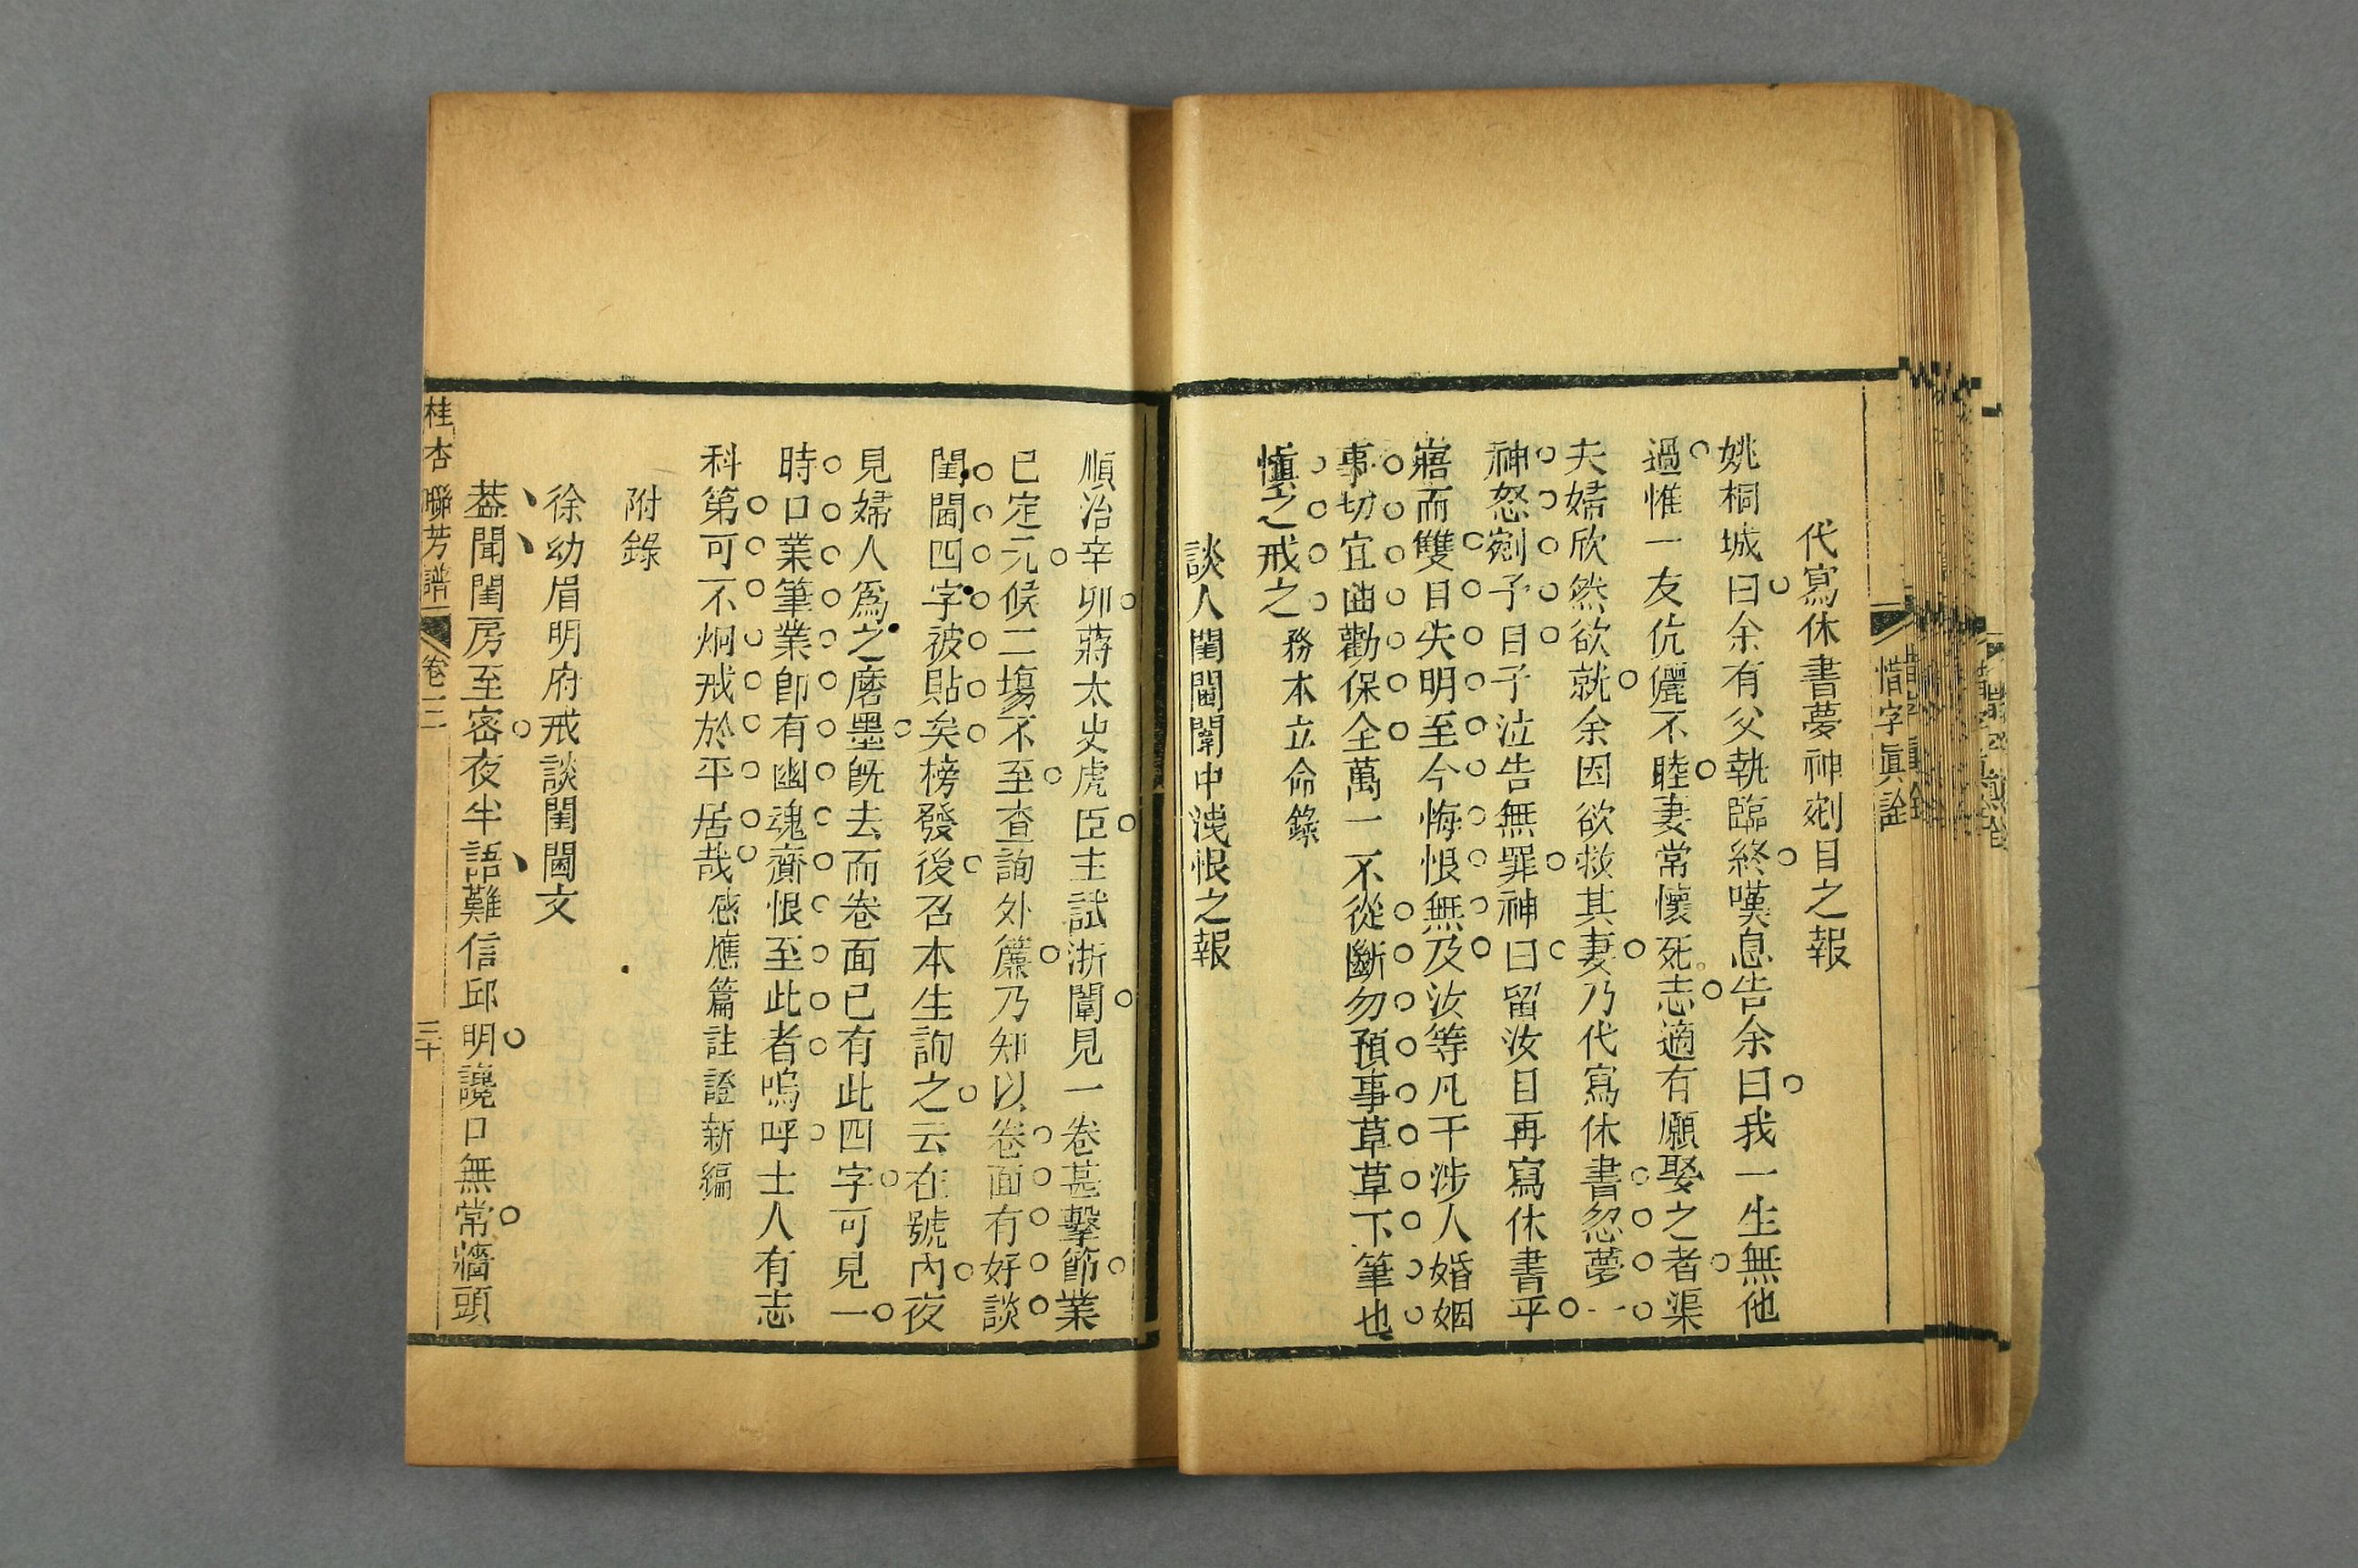 惜字眞詮
代寫休書夢神剜目之報
姚桐城曰余有父執臨終嘆息告余曰我一生無他
過惟一友伉儷不睦妻常懷死志適有願娶之者渠
夫婦欣然欲就余因欲救其妻乃代寫休書忽夢一
神怒剜予目予泣告無罪神曰留汝目再寫休書乎
寤而雙目失明至今悔恨無及汝等凡干涉人婚姻
事切宜幽勸保全萬一不從斷勿預事草草下筆也
慎之戒之務本立命錄
談人閨閫闈中洩恨之報
順治辛卯蔣太史虎臣主試浙闈見一卷甚擊節業
已定元候二塲不至查詢外簾乃知以卷面有好談
閨閫四字被貼矣榜發後召本生詢之云在號內夜
見婦人爲之磨墨旣去而卷面已有此四字可見一
時口業筆業卽有幽魂齎恨至此者嗚呼士人有志
科第可不炯戒於平居哉感應篇註證新編
附錄
徐幼眉明府戒談閨閫文
葢聞閨房至密夜半語難信邱明讒口無常牆頭
桂杏聯芳譜 卷二 三十